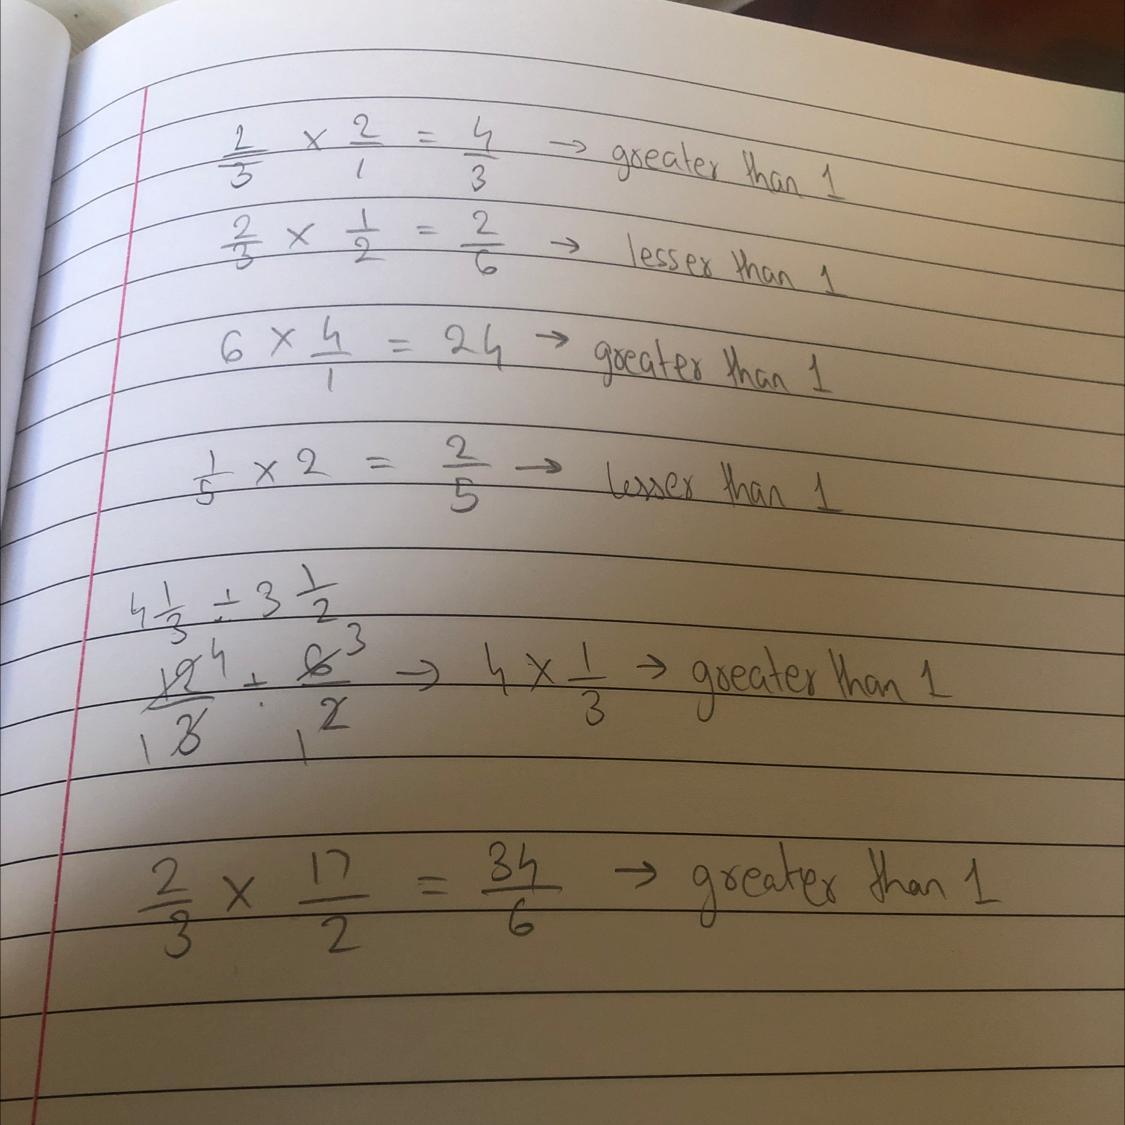 2/3 × 2/1 = 4/3 → greater than 1
2/3 × 1/2 = 2/6 → lesser than 1
6 × 4/1 = 24 → greater than 1
1/5 × 2 = 2/5 → lesser than 1
4 1/3 ÷ 3 1/2
12 4/1 3 ÷ 6 3/1 2 → 4 × 1/3 → greater than 1
2/3 × 17/2 = 34/6 → greater than 1